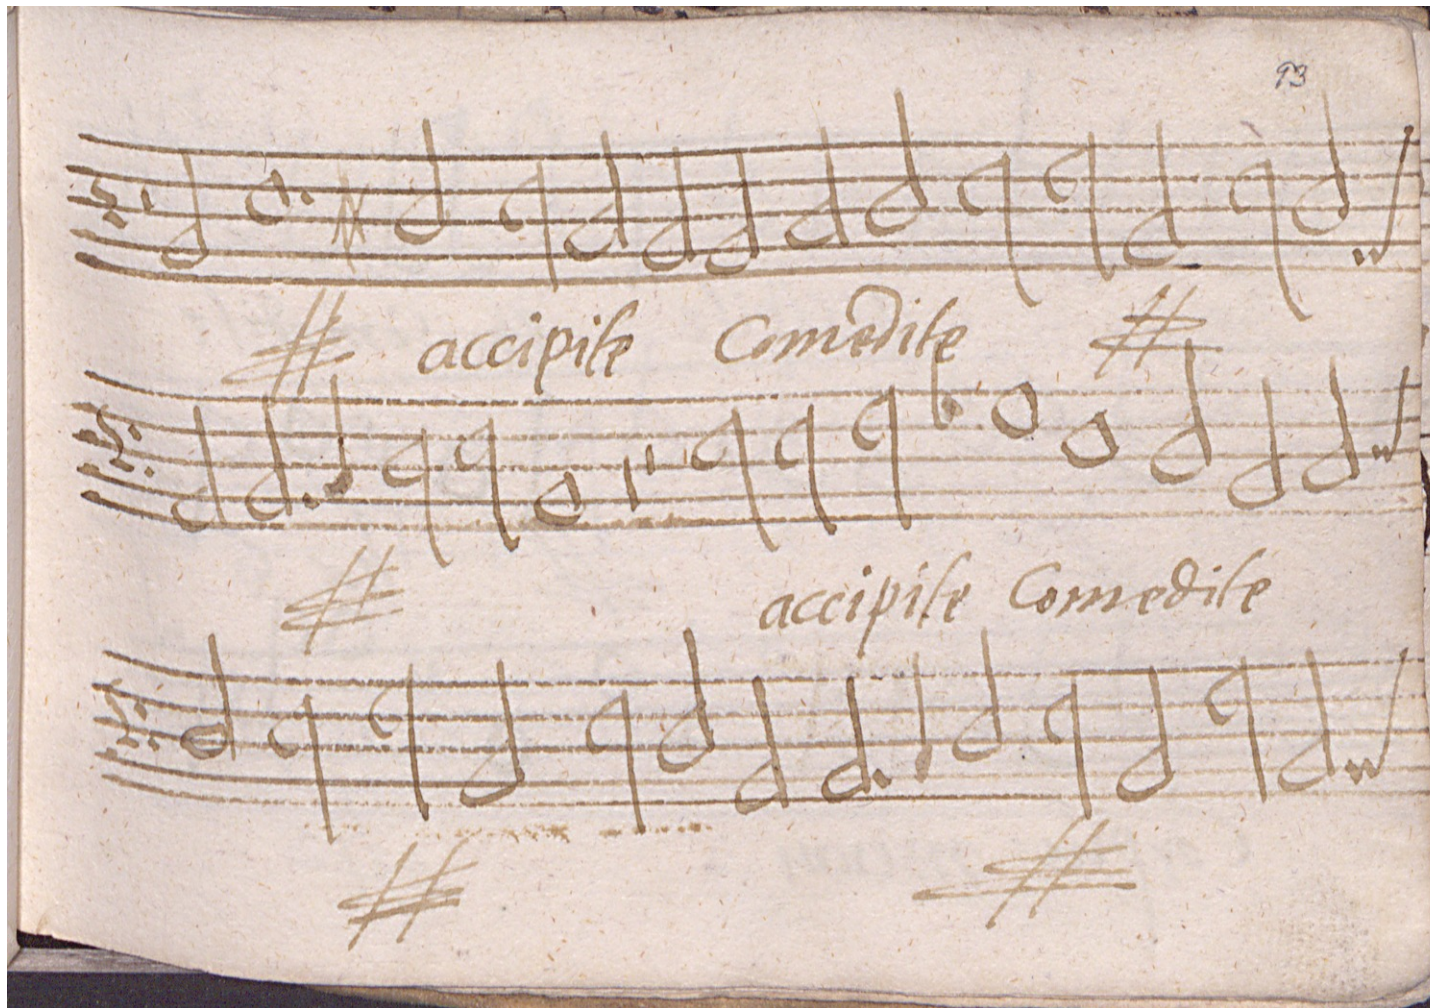 93
accipite Comedite
accipite Comedite